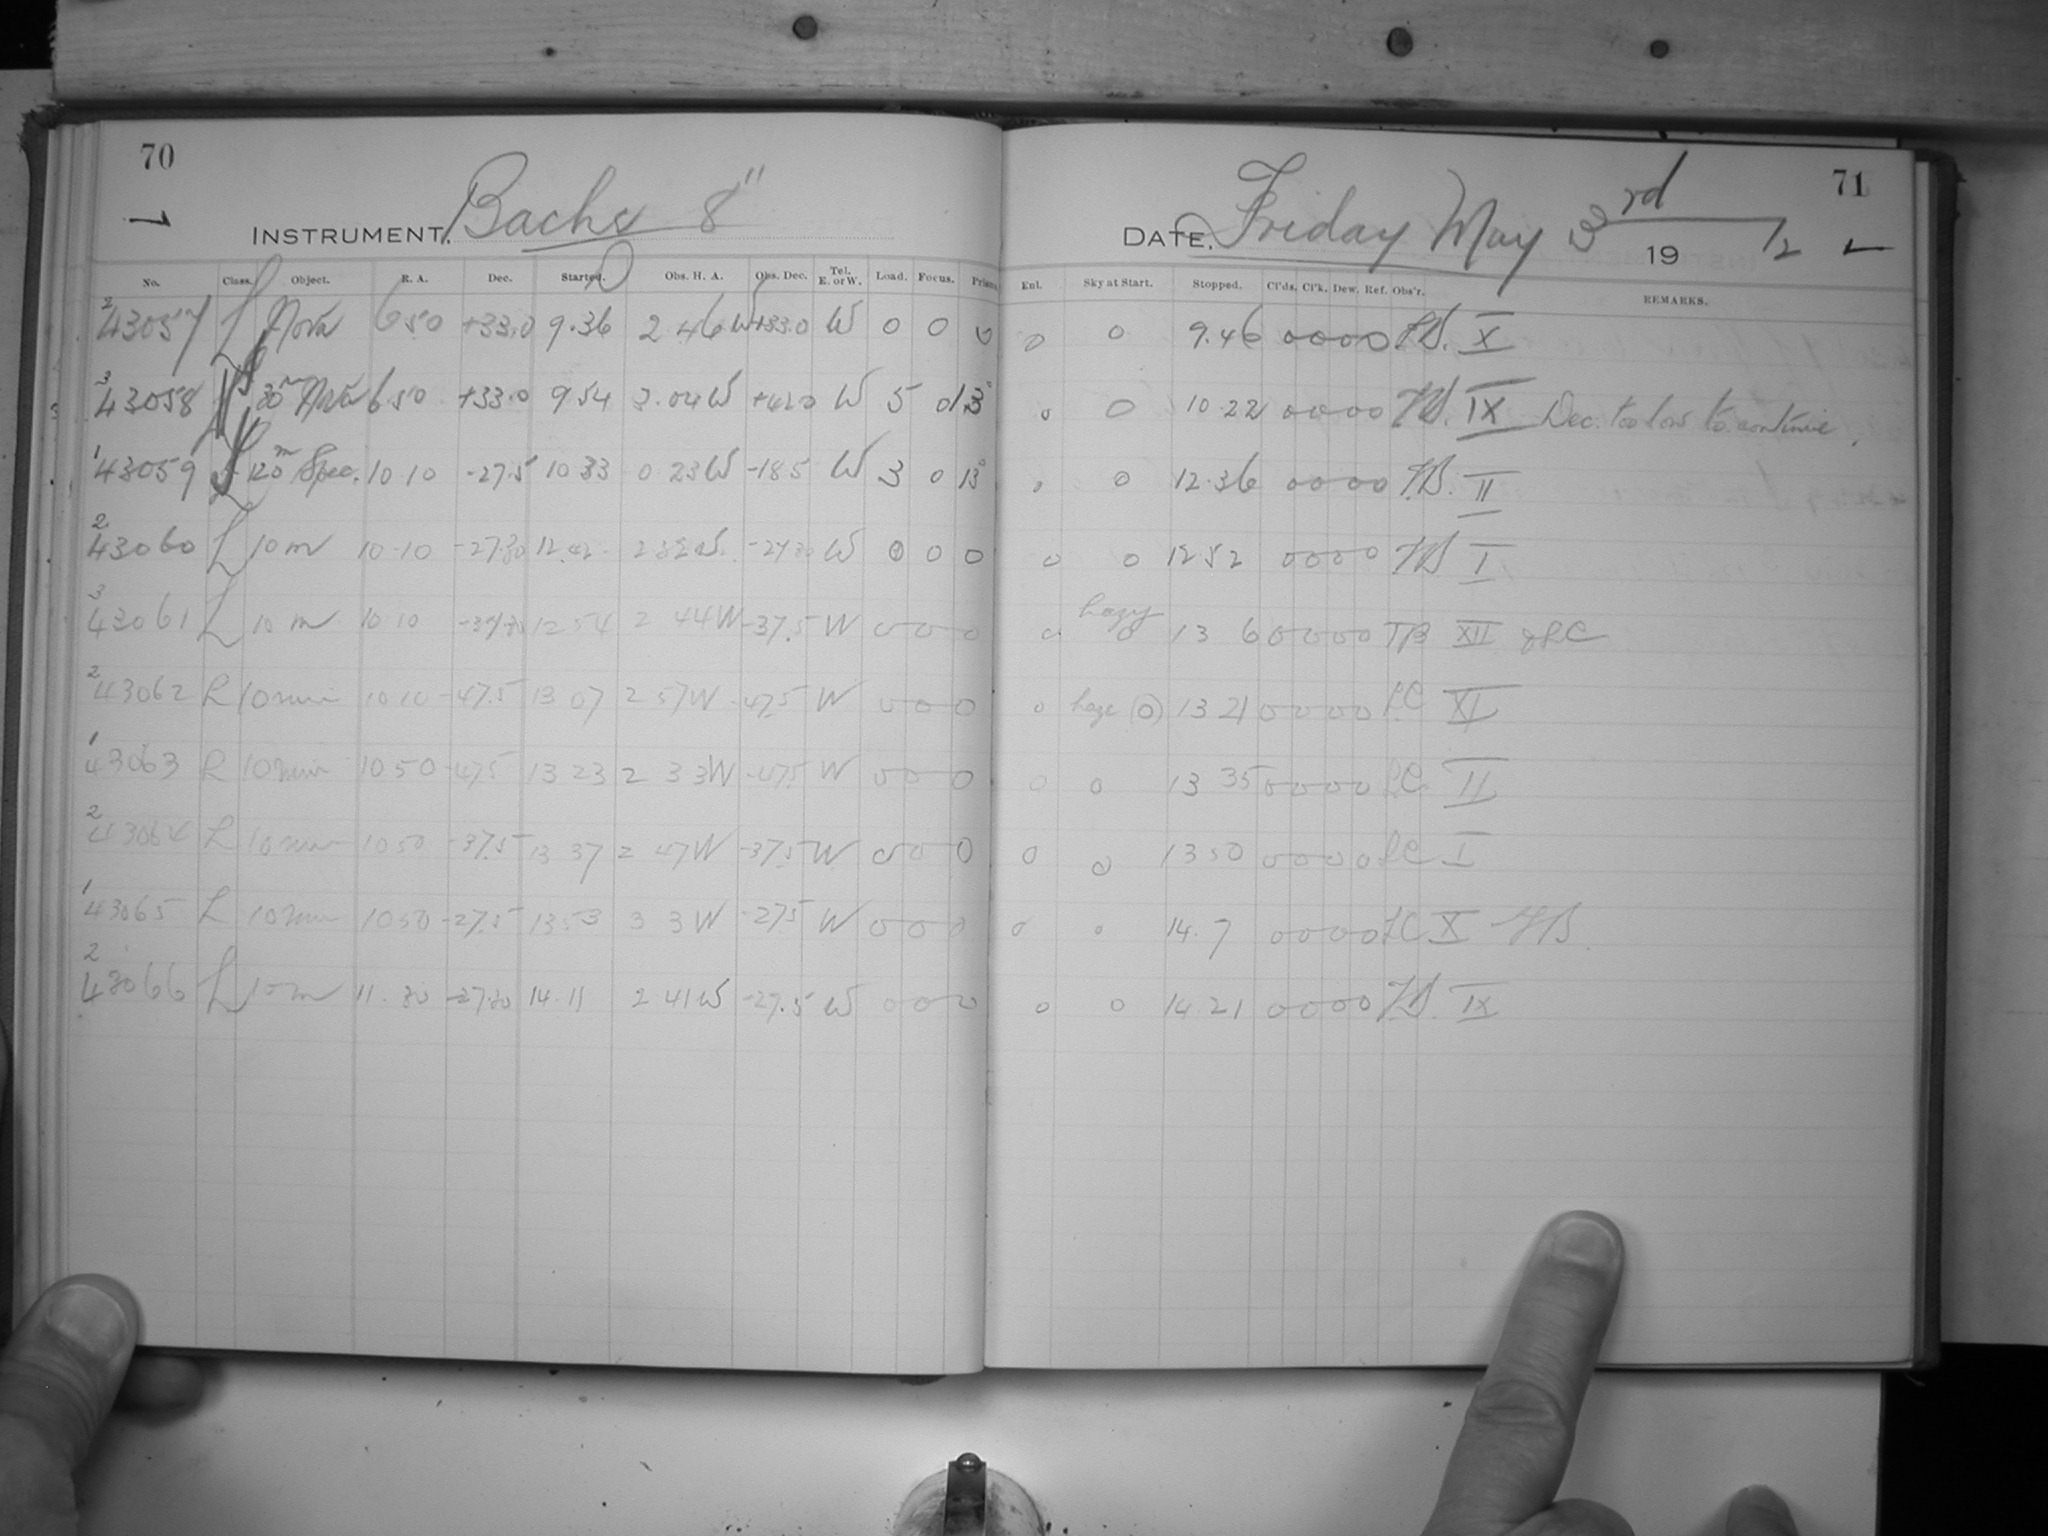 70
INSTRUMENT. Bache 8"
No. Class. Object. R. A. Dec. Started. Obs. H. A. Obs. Dec. Tel. E. or W. Load. Focus. Prism
2 43057 L Nova 6 50 +33.0 9.36 2 46 W +33.0 W 0 0 0
3 43058 30m Nova 6 50 +33.0 9 54 3.04 W W 5 0 13°
1 43059 120m Spec. 10 10 -27.5 10 33 0 23 W -18.5 W 3 0 13°
2 43060 L 10 m 10 10 -27.30 12.42 2 32 W -27.30 W 0 0 0
3 43061 L 10 m 10 10 -37.30 12 54 2 44 W -37.5 W 0 0 0
2 43062 L 10 min 10 10 -47.5 13 07 2 57 W -47.5 W 0 0 0
1 43063 L 10 min 10 50 -47.5 13 23 2 33 W -47.5 W 0 0 0
2 43064 L 10 min 10 50 -37.5 13 37 2 47 W -37.5 W 0 0 0
1 43065 L 10 min 10 50 -27.5 13 53 3 3 W -27.5 W 0 0 0
2 43066 L 10 m 11.30 -27.30 14.11 2 41 W -27.5 W 0 0 0
71
DATE. Friday May 3rd 1912
Enl. Sky at Start. Stopped. Cl'ds. Cl'k. Dew. Ref. Obs'r. REMARKS.
0 0 9.46 0 0 0 0 X
0 0 10 22 0 0 0 0 IX Dec. too low to continue.
0 0 12.36 0 0 0 0 II
0 0 12 52 0 0 0 0 I
0 hazy 0 13 6 0 0 0 0 XII
0 haze (0) 13 21 0 0 0 0 LC XI
0 0 13 35 0 0 0 0 LC II
0 0 13 50 0 0 0 0 LC I
0 0 14.7 0 0 0 0 LC X
0 0 14 21 0 0 0 0 IX